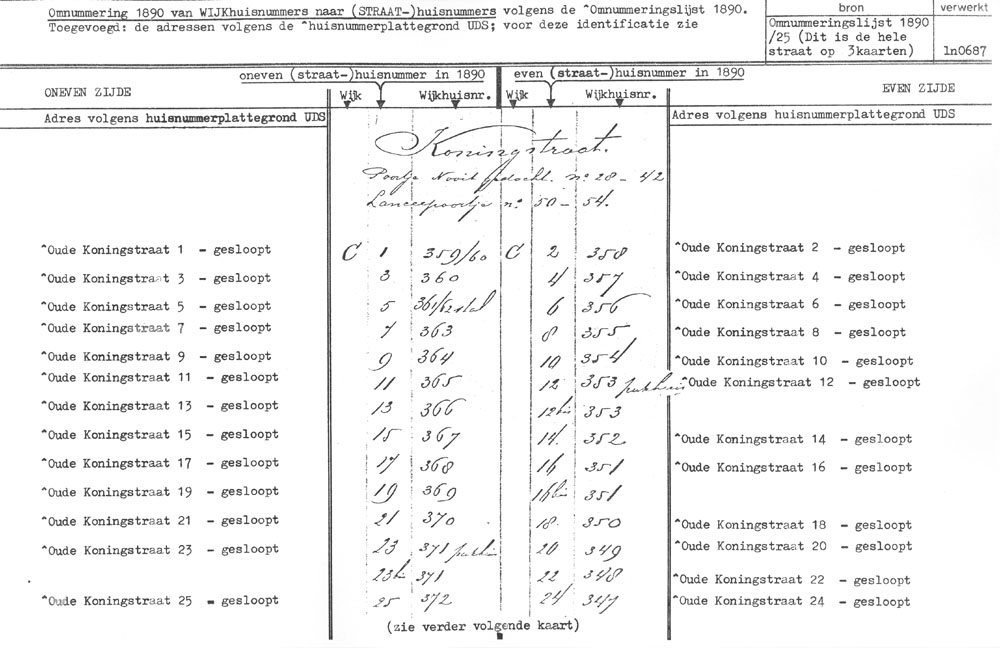 Omnummering 1890 van WIJKhuisnummers naar (STRAAT-)huisnummers volgens de ^Omnummeringslijst 1890.
Toegevoegd: de adressen volgens de ^huisnummerplattegrond UDS; voor deze identificatie zie
bron
Omnummeringslijst 1890
/25 (Dit is de hele
straat op 3kaarten)
verwerkt
ln0687
oneven (straat-)huisnummer in 1890 even (straat-)huisnummer in 1890
ONEVEN ZIJDE Wijk Wijkhuisnr. Wijk Wijkhuisnr. EVEN ZIJDE
Adres volgens huisnummerplattegrond UDS Adres volgens huisnummerplattegrond UDS
Koningstraat.
Poortje Nooit gedacht. no 28 - 42
Lanceepoortje no 50 - 54.
^Oude Koningstraat 1 - gesloopt C 1 359/60 C 2 358 ^Oude Koningstraat 2 - gesloopt
^Oude Koningstraat 3 - gesloopt 3 360 4 357 ^Oude Koningstraat 4 - gesloopt
^Oude Koningstraat 5 - gesloopt 5 361/62 stal 6 356 ^Oude Koningstraat 6 - gesloopt
^Oude Koningstraat 7 - gesloopt 7 363 8 355 ^Oude Koningstraat 8 - gesloopt
^Oude Koningstraat 9 - gesloopt 9 364 10 354 ^Oude Koningstraat 10 - gesloopt
^Oude Koningstraat 11 - gesloopt 11 365 12 353 pakhuis ^Oude Koningstraat 12 - gesloopt
^Oude Koningstraat 13 - gesloopt 13 366 12bis 353
^Oude Koningstraat 15 - gesloopt 15 367 14. 352 ^Oude Koningstraat 14 - gesloopt
^Oude Koningstraat 17 - gesloopt 17 368 16 351 ^Oude Koningstraat 16 - gesloopt
^Oude Koningstraat 19 - gesloopt 19 369 16bis 351
^Oude Koningstraat 21 - gesloopt 21 370 18. 350 ^Oude Koningstraat 18 - gesloopt
^Oude Koningstraat 23 - gesloopt 23 371 pakhuis 20 349 ^Oude Koningstraat 20 - gesloopt
23bis 371 22 348 ^Oude Koningstraat 22 - gesloopt
^Oude Koningstraat 25 - gesloopt 25 372 24 347 ^Oude Koningstraat 24 - gesloopt
(zie verder volgende kaart)